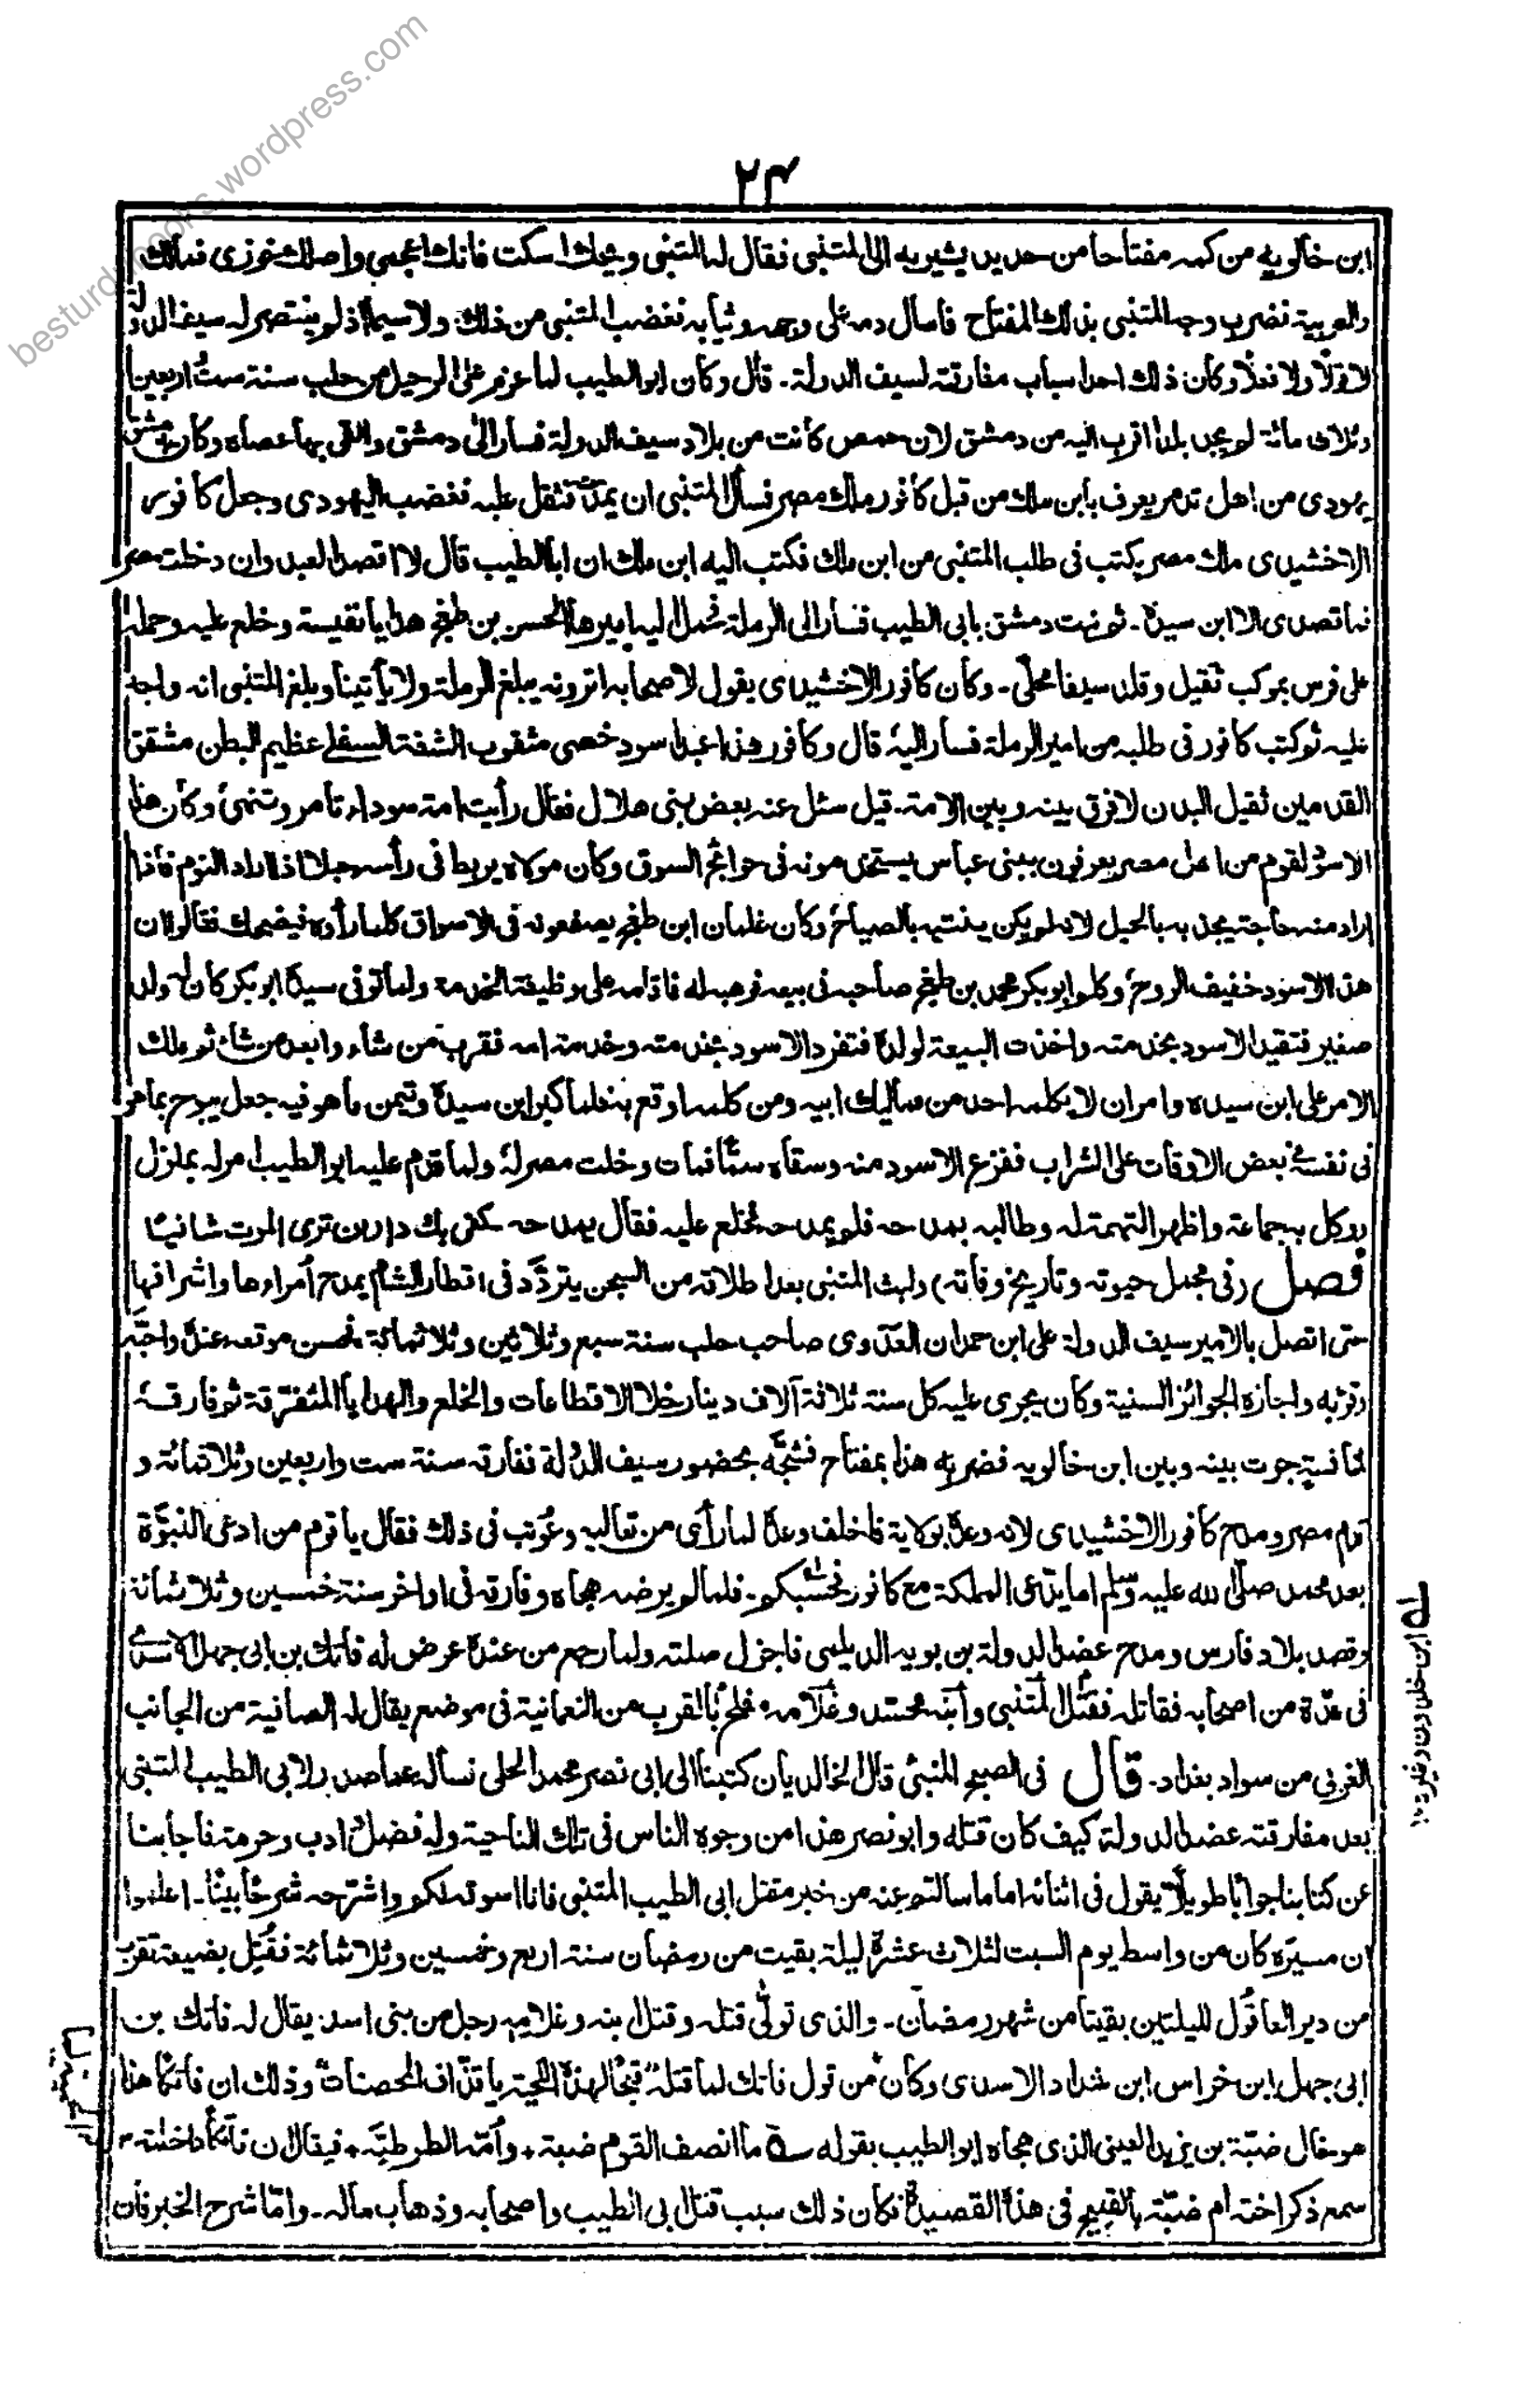 besturdubooks.wordpress.com
٢٣
ابن خالويه من كمه مفتاحا من حديد يشير به الى المتنبى فقال له المتنبى ويحك اسكت فانك اعجمى واصلك خوزى فمالك
والعربية فضرب وجه المتنبى بذلك المفتاح فاسال دمه على وجهه وثيابه فغضب المتنبى من ذلك ولا سيما اذ لم ينتصر له سيف الدولة
لا قولًا ولا فعلًا وكان ذلك احد اسباب مفارقته لسيف الدولة۔ قال وكان ابو الطيب لما عزم على الرحيل من حلب سنة ست اربعين
وثلاث مائة لم يجد بلدا اقرب اليه من دمشق لان حمص كانت من بلاد سيف الدولة فسار الى دمشق والقى بها عصاه وكان بدمشق
يهودى من اهل تدمر يعرف بابن ملك من قبل كافور ملك مصر فسأل المتنبى ان يمدحه فثقل عليه فغضب اليهودى وجعل كافور
الاخشيدى ملك مصر يكتب فى طلب المتنبى من ابن ملك فكتب اليه ابن ملك ان ابا الطيب قال لا اقصد العبد وان دخلت مصر
فما قصدى الا ابن سيده۔ ثم نبت دمشق بابى الطيب فسار الى الرملة فحمل اليه اميرها الحسن بن طغج هدايا نفيسة وخلع عليه وحمله
على فرس بموكب ثقيل وقلده سيفا محلّى۔ وكان كافور الاخشيدى يقول لاصحابه اترونه يبلغ الرملة ولا يأتينا وبلغ المتنبى انه واجد
عليه ثم كتب كافور فى طلبه من امير الرملة فسار اليه قال وكافور هذا عبد اسود خصى مثقوب الشفة السفلى عظيم البطن مشقق
القدمين ثقيل البدن لا فرق بينه وبين الامة۔ قيل سئل عنه بعض بنى هلال فقال رأيت امة سوداء تامر وتنهى وكان هذا
الاسود لقوم من اهل مصر يعرفون ببنى عباس يستخدمونه فى حوائج السوق وكان مولاه يربط فى رأسه حبلا اذا اراد النوم فاذا
اراد منه حاجة يجذبه بالحبل لانه لم يكن ينتبه بالصياح وكان غلمان ابن طغج يصفعونه فى الاسواق كلما رأوه فيضحك فقالوا ان
هذا الاسود خفيف الروح وكلموا ابو بكر محمد بن طغج صاحبه فى بيعه فوهبه له فاقامه على وظيفة الخدمة ولما توفى سيده ابو بكر كان له ولد
صغير فتقيد الاسود بخدمته واخذت البيعة لولده فتفرد الاسود بخدمته وخدمة امه فقرب من شاء وابعد من شاء ثم ملك
الامر على ابن سيده وامر ان لا يكلمه احد من مماليك ابيه ومن كلمه اوقع به فلما كبر ابن سيده وتبين ما هو فيه جعل يبوح بما هو
فى نفسه فى بعض الاوقات على الشراب ففزع الاسود منه وسقاه سمًّا فمات وخلت مصر له ولما قدم عليه ابو الطيب امر له بمنزل
ووكل به جماعة واظهر التهمة له وطالبه بمدحه فلم يمدحه فخلع عليه فقال يمدحه كفى بك داء ان ترى الموت شافيًا
فصل (فى مجمل حيوته وتاريخ وفاته) ولبث المتنبى بعد اطلاقه من السجن يتردَّد فى اقطار الشام يمدح أمراءها واشرافها
حتى اتصل بالامير سيف الدولة على ابن حمدان العدوى صاحب حلب سنة سبع وثلاثين وثلاثمائة فحسن موقعه عنده واحبّه
وقربه واجازه الجوائز السنية وكان يجرى عليه كل سنة ثلاثة آلاف دينار خلا الاقطاعات والخلع والهدايا المتفرقة ثم فارقه
لمنافسة جرت بينه وبين ابن خالويه فضربه هذا بمفتاح فشجّه بحضور سيف الدولة ففارقه سنة ست واربعين وثلاثمائة و
قدم مصر ومدح كافور الاخشيدى لانه وعده بولاية فاخلف وعده لما رأى من تعاليه وعوتب فى ذلك فقال يا قوم من ادعى النبوّة
بعد محمد صلى الله عليه وسلم اما يدّعى المملكة مع كافور فحسبكم۔ فلما لم يرضه هجاه وفارقه فى اواخر سنة خمسين وثلاثمائة
وقصد بلاد فارس ومدح عضد الدولة بن بويه الديلمى فاجزل صلته ولما رجع من عنده عرض له فاتك بن ابى جهل الاسدى
فى عدّة من اصحابه فقاتله فقتل المتنبى وابنه محسّد وغلامه مفلح بالقرب من النعمانية فى موضع يقال له الصافية من الجانب
الغربى من سواد بغداد۔ قال فى الصبح المنبى قال الخالديان كتبنا الى ابى نصر محمد الحلى نسأله عما صدر لابى الطيب المتنبى
بعد مفارقته عضد الدولة كيف كان قتله وابو نصر هذا من وجوه الناس فى تلك الناحية وله فضل وادب وحرمة فاجابنا
عن كتابنا جوابًا طويلًا يقول فى اثنائه اما ما سألتم عنه من خبر مقتل ابى الطيب المتنبى فانا اسوقه لكم واشرحه شرحًا بيّنًا۔ اعلموا
ان مسيره كان من واسط يوم السبت لثلاث عشرة ليلة بقيت من رمضان سنة اربع وخمسين وثلاثمائة فقُتِل بضيعة تقرب
من دير العاقول لليلتين بقيتا من شهر رمضان۔ والذى تولّى قتله وقتل ابنه وغلامه رجل من بنى اسد يقال له فاتك بن
ابى جهل ابن خراس ابن شداد الاسدى وكان من قول فاتك لما قتله قبحًا لهذه اللحية يا قذّاف المحصنات وذلك ان فاتكا هذا
هو خال ضبّة بن يزيد العينى الذى هجاه ابو الطيب بقوله ؎ ما انصف القوم ضبة + وأمّه الطرطبّه + فيقال ان فاتكا داخلته
سمع ذكر اخته ام ضبّة بالقبيح فى هذه القصيدة فكان ذلك سبب قتل ابى الطيب واصحابه وذهاب ماله۔ وامّا شرح الخبر فان
له ابن خلدون وغيره ١٢